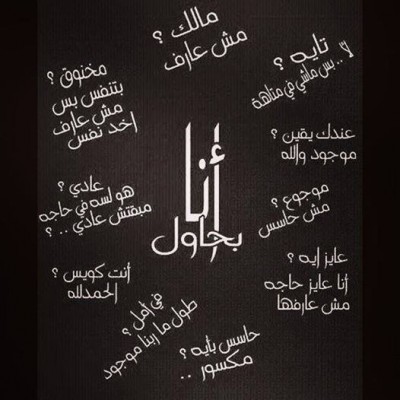 مالك ؟
مش عارف
تايه ؟
لأ .. بس ماشي في متاهة
مخنوق ؟
بتنفس بس
مش عارف
اخد نفس
عندك يقين ؟
موجود والله
أنا
بحاول
عادي ؟
هو لسه في حاجه
مبقتش عادي .. ؟
موجوع ؟
مش حاسس
عايز إيه ؟
أنا عايز حاجه
مش عارفها
أنت كويس ؟
الحمدلله
في أمل ؟
طول ما ربنا موجود
حاسس بأيه ؟
مكسور ..